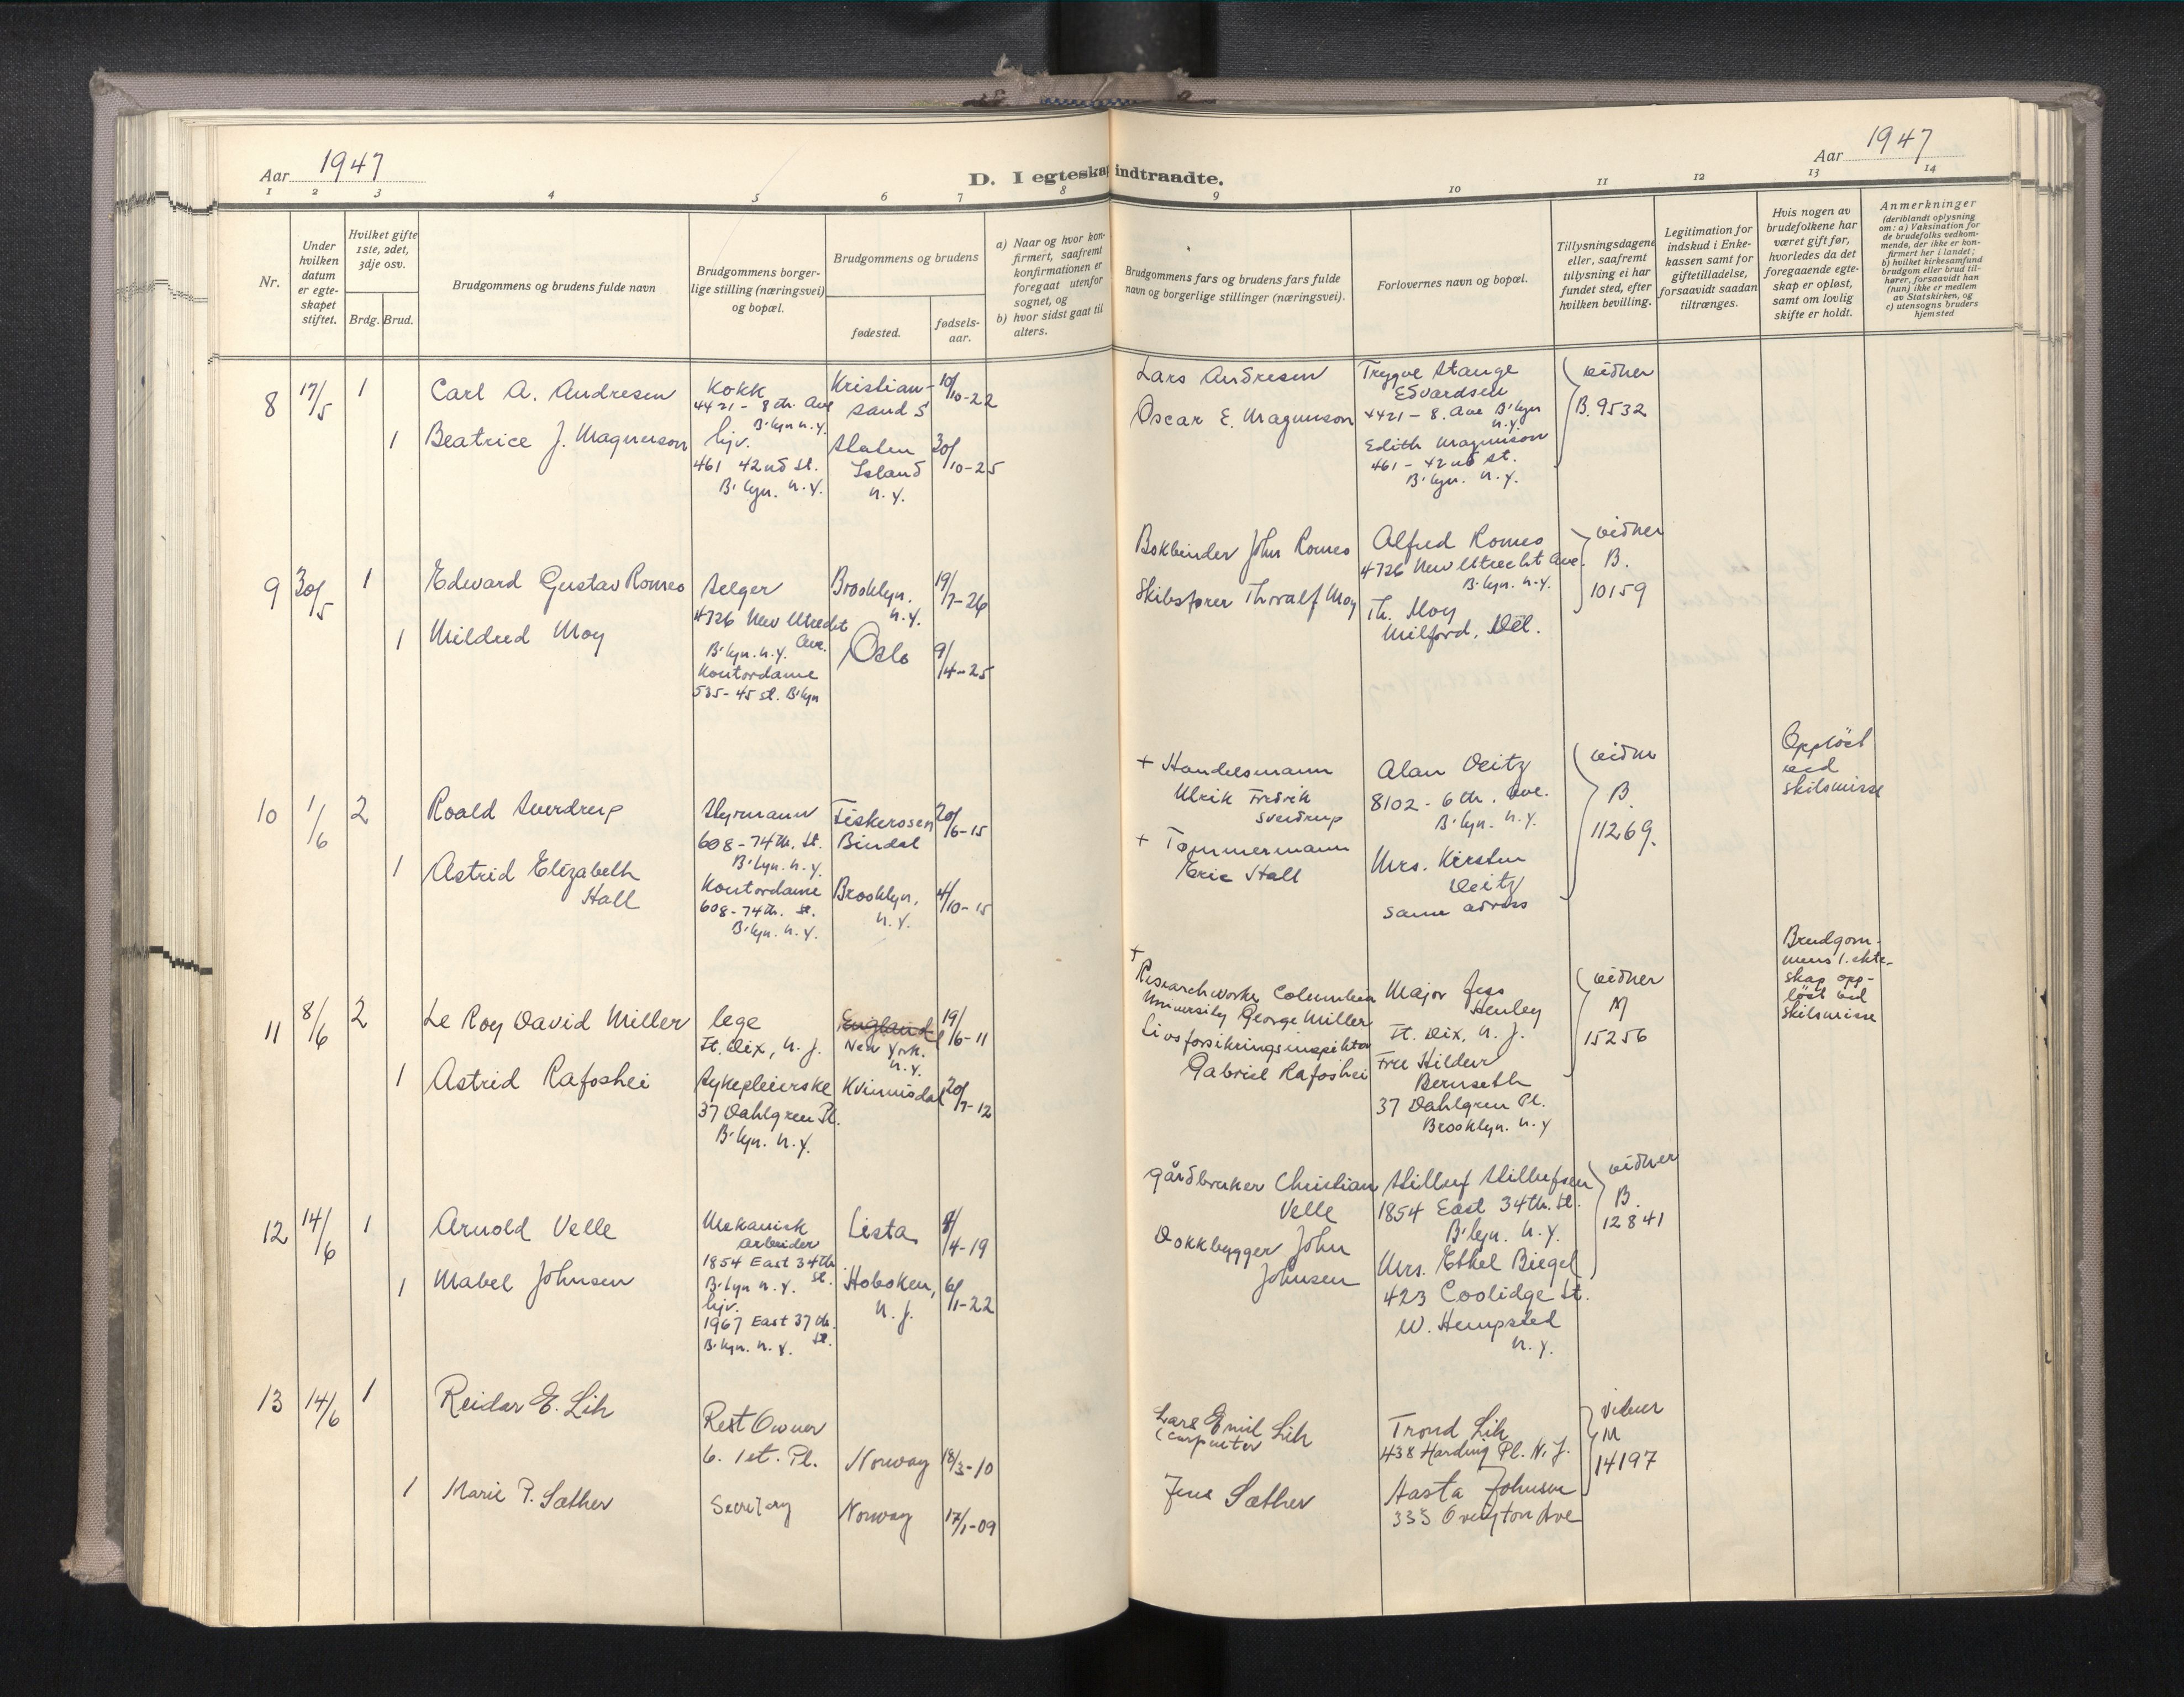 Aar 1947
D. I egteskap indtraadte.
Aar 1947
1 2 3 4 5 6 7 8 9 10 11 12 13 14
Nr.
Under
hvilken
datum
er egte-
skapet
stiftet.
Hvilket gifte
1ste, 2det,
3dje osv.
Brdg. Brud.
Brudgommens og brudens fulde navn
Brudgommens borger-
lige stilling (næringsvei)
og bopæl.
Brudgommens og brudens
fødested.
fødsels-
aar.
a) Naar og hvor kon-
firmert, saafremt
konfirmationen er
foregaat utenfor
sognet, og
b) hvor sidst gaat til
alters.
Brudgommens fars og brudens fars fulde
navn og borgerlige stillinger (næringsvei).
Forlovernes navn og bopæl.
Tillysningsdagene
eller, saafremt
tillysning ei har
fundet sted, efter
hvilken bevilling.
Legitimation for
indskud i Enke-
kassen samt for
giftetilladelse,
forsaavidt saadan
tiltrænges.
Hvis nogen av
brudefolkene har
været gift før,
hvorledes da det
foregaaende egte-
skap er opløst,
samt om lovlig
skifte er holdt.
Anmerkninger
(deriblandt oplysning
om: a) Vaksination for
de brudefolks vedkom-
mende, der ikke er kon-
firmert her i landet;
b) hvilket kirkesamfund
brudgom eller brud til-
hører, forsaavidt han
(hun) ikke er medlem
av Statskirken, og
c) utensogns bruders
hjemsted
8 17/5 1
Carl A. Andresen
Kokk
4421 - 8th. Ave
B'lyn n.y.
Kristian-
sand S
10/10-22
Lars Andresen
Trygve Stange
Edvardsen
4421 - 8. Ave B'lyn
n.y.
vidner
B. 9532
1
Beatrice J. Magnuson
hjv.
461 42nd St.
B'lyn. N.Y.
Staten
Island
N.Y.
30/10-25
Oscar E. Magnuson
Edith Magnuson
461 - 42nd St.
B'lyn. N.Y.
9 30/5 1
Edward Gustav Romeo
Selger
4726 New Utrecht
Ave.
B'lyn. N.Y.
Brooklyn.
N.Y.
19/7-26
Bokbinder John Romeo
Alfred Romeo
4726 New Utrecht Ave.
B'lyn. N.Y.
vidner
B.
10159
1
Mildred Moy
Kontordame
535 - 45 St. B'lyn
Oslo
9/4-25
Skibsfører Thoralf Moy
Th. Moy
Milford, Del.
10 1/6 2
Roald Sverdrup
Styrmann
608 - 74th. St.
B'lyn. N.Y.
Fiskerosen
Bindal
20/6-15
+ Handelsmann
Ulrik Fredrik
Sverdrup
Alan Veitz
8102 - 6th. Ave.
B'lyn. N.Y.
vidner
B.
11269.
Oppløst
ved
skilsmisse
1
Astrid Elizabeth
Hall
Kontordame
608 - 74th. St.
B'lyn. N.Y.
Brooklyn,
N.Y.
4/10-15
+ Tømmermann
Eric Hall
Mrs. Kirsten
Veitz
same adress
11 8/6 2
Le Roy David Miller
lege
Ft. Dix, N.J.
England
New York.
N.Y.
19/6-11
+
Researchworker Columbia
University George Miller
Major Jess
Henley
Ft. Dix, N.J.
vidner
M
15256
Brudgom-
mens 1. ekte-
skap opp-
løst ved
skilsmisse
1
Astrid Rafoshei
Sykepleierske
37 Dahlgren Pl.
B'lyn. N.Y.
Kvinnisdal
20/7-12
Livsforsikringsinspektør
Gabriel Rafoshei
Fru Hildur
Bernseth
37 Dahlgren Pl.
Brooklyn. N.Y
12 14/6 1
Arnold Velle
Mekanisk
arbeider
1854 East 34th
St.
B'lyn N.Y.
Lista
8/4-19
Gårdbruker Christian
Velle
Stilluf Stillufsen
1854 East 34th. St.
B'lyn. N.Y.
vidner
B.
12841
1
Mabel Johnsen
hjv.
1967 East 37th.
St.
B'lyn. N.Y.
Hoboken,
N.J.
6/1-22
Dokkbygger John
Johnsen
Mrs. Ethel Biegel
423 Coolidge St.
W. Hempsted
N.Y.
13 14/6 1
Reidar E. Lih
Rest Owner
6. 1st. Pl.
Norway
18/3-10
Lars Emil Lih
(Carpenter
Trond Lih
438 Harding Pl. N.J.
vidner
M
14197
1
Marie P. Sæther
Secretary
Norway
17/1-09
Jens Sæther
Aasta Johnsen
335 Ovington Ave